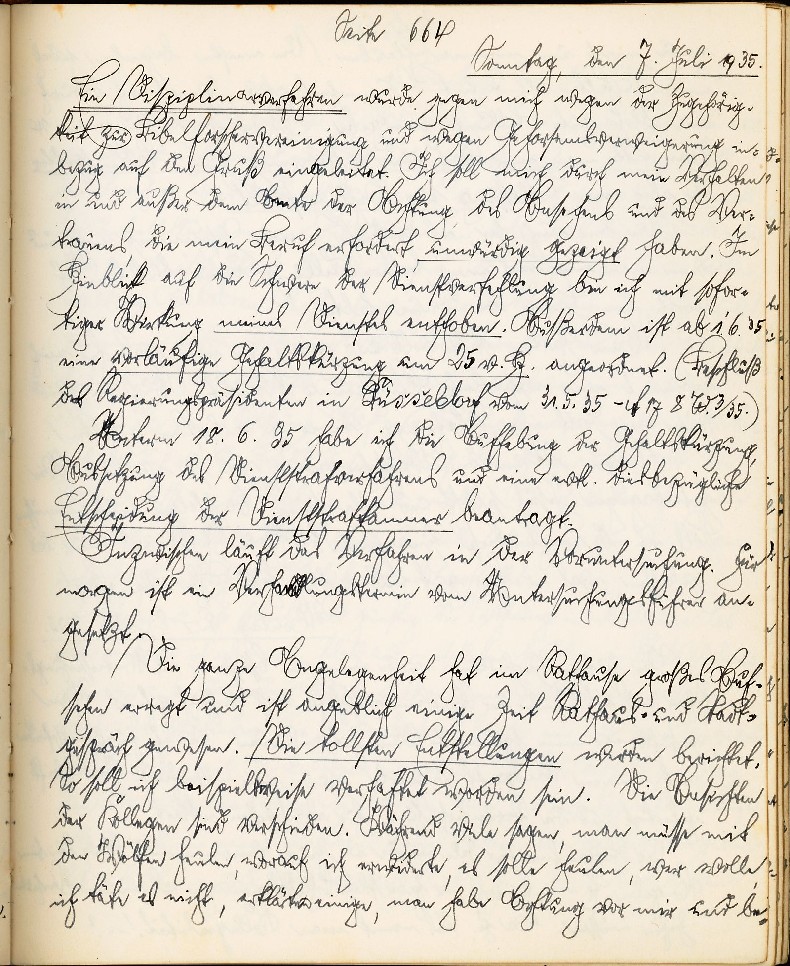 Seite 664
Sonntag, den 7. Juli 1935.
Ein Disziplinarverfahren wurde gegen mich wegen der Zugehörig-
keit zur Bibelforschervereinigung und wegen Gehorsamsverweigerung in-
bezug auf den Gruß eingeleitet. Ich soll mich durch mein Verhalten
in und außer dem Amte der Achtung, des Ansehens und des Ver-
trauens, die mein Beruf erfordert, unwürdig gezeigt haben. Im
Hinblick auf die Schwere der Dienstverfehlung bin ich mit sofor-
tiger Wirkung meines Dienstes enthoben. Außerdem ist ab 1 6. 35
eine vorläufige Gehaltskürzung um 25 v. H. angeordnet. (Beschluß
des Regierungspräsidenten in Düsseldorf vom 31. 5. 35
Unterm 18. 6. 35 habe ich die Aufhebung der Gehaltskürzung,
Aussetzung des Dienststrafverfahrens und eine evtl. diesbezügliche
Entscheidung der Dienststrafkammer beantragt.
Inzwischen läuft das Verfahren in der Voruntersuchung. Für
morgen ist ein Verhandlungstermin vom Untersuchungsführer an-
gesetzt.
Die ganze Angelegenheit hat im Rathause großes Auf-
sehen erregt und ist angeblich einige Zeit Rathaus- und Stadt-
gespräch gewesen. Die tollsten Entstellungen werden berichtet.
So soll ich beispielsweise verhaftet worden sein. Die Ansichten
der Kollegen sind verschieden. Während viele sagen, man müsse mit
den Wölfen heulen, worauf ich erwiderte, es solle heulen, wer wolle,
ich täte es nicht, erklärten einige, man habe Achtung vor mir und be-